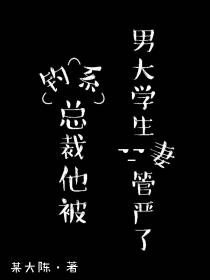 钓系总裁他被
男大学生妻管严了
某大陈·著